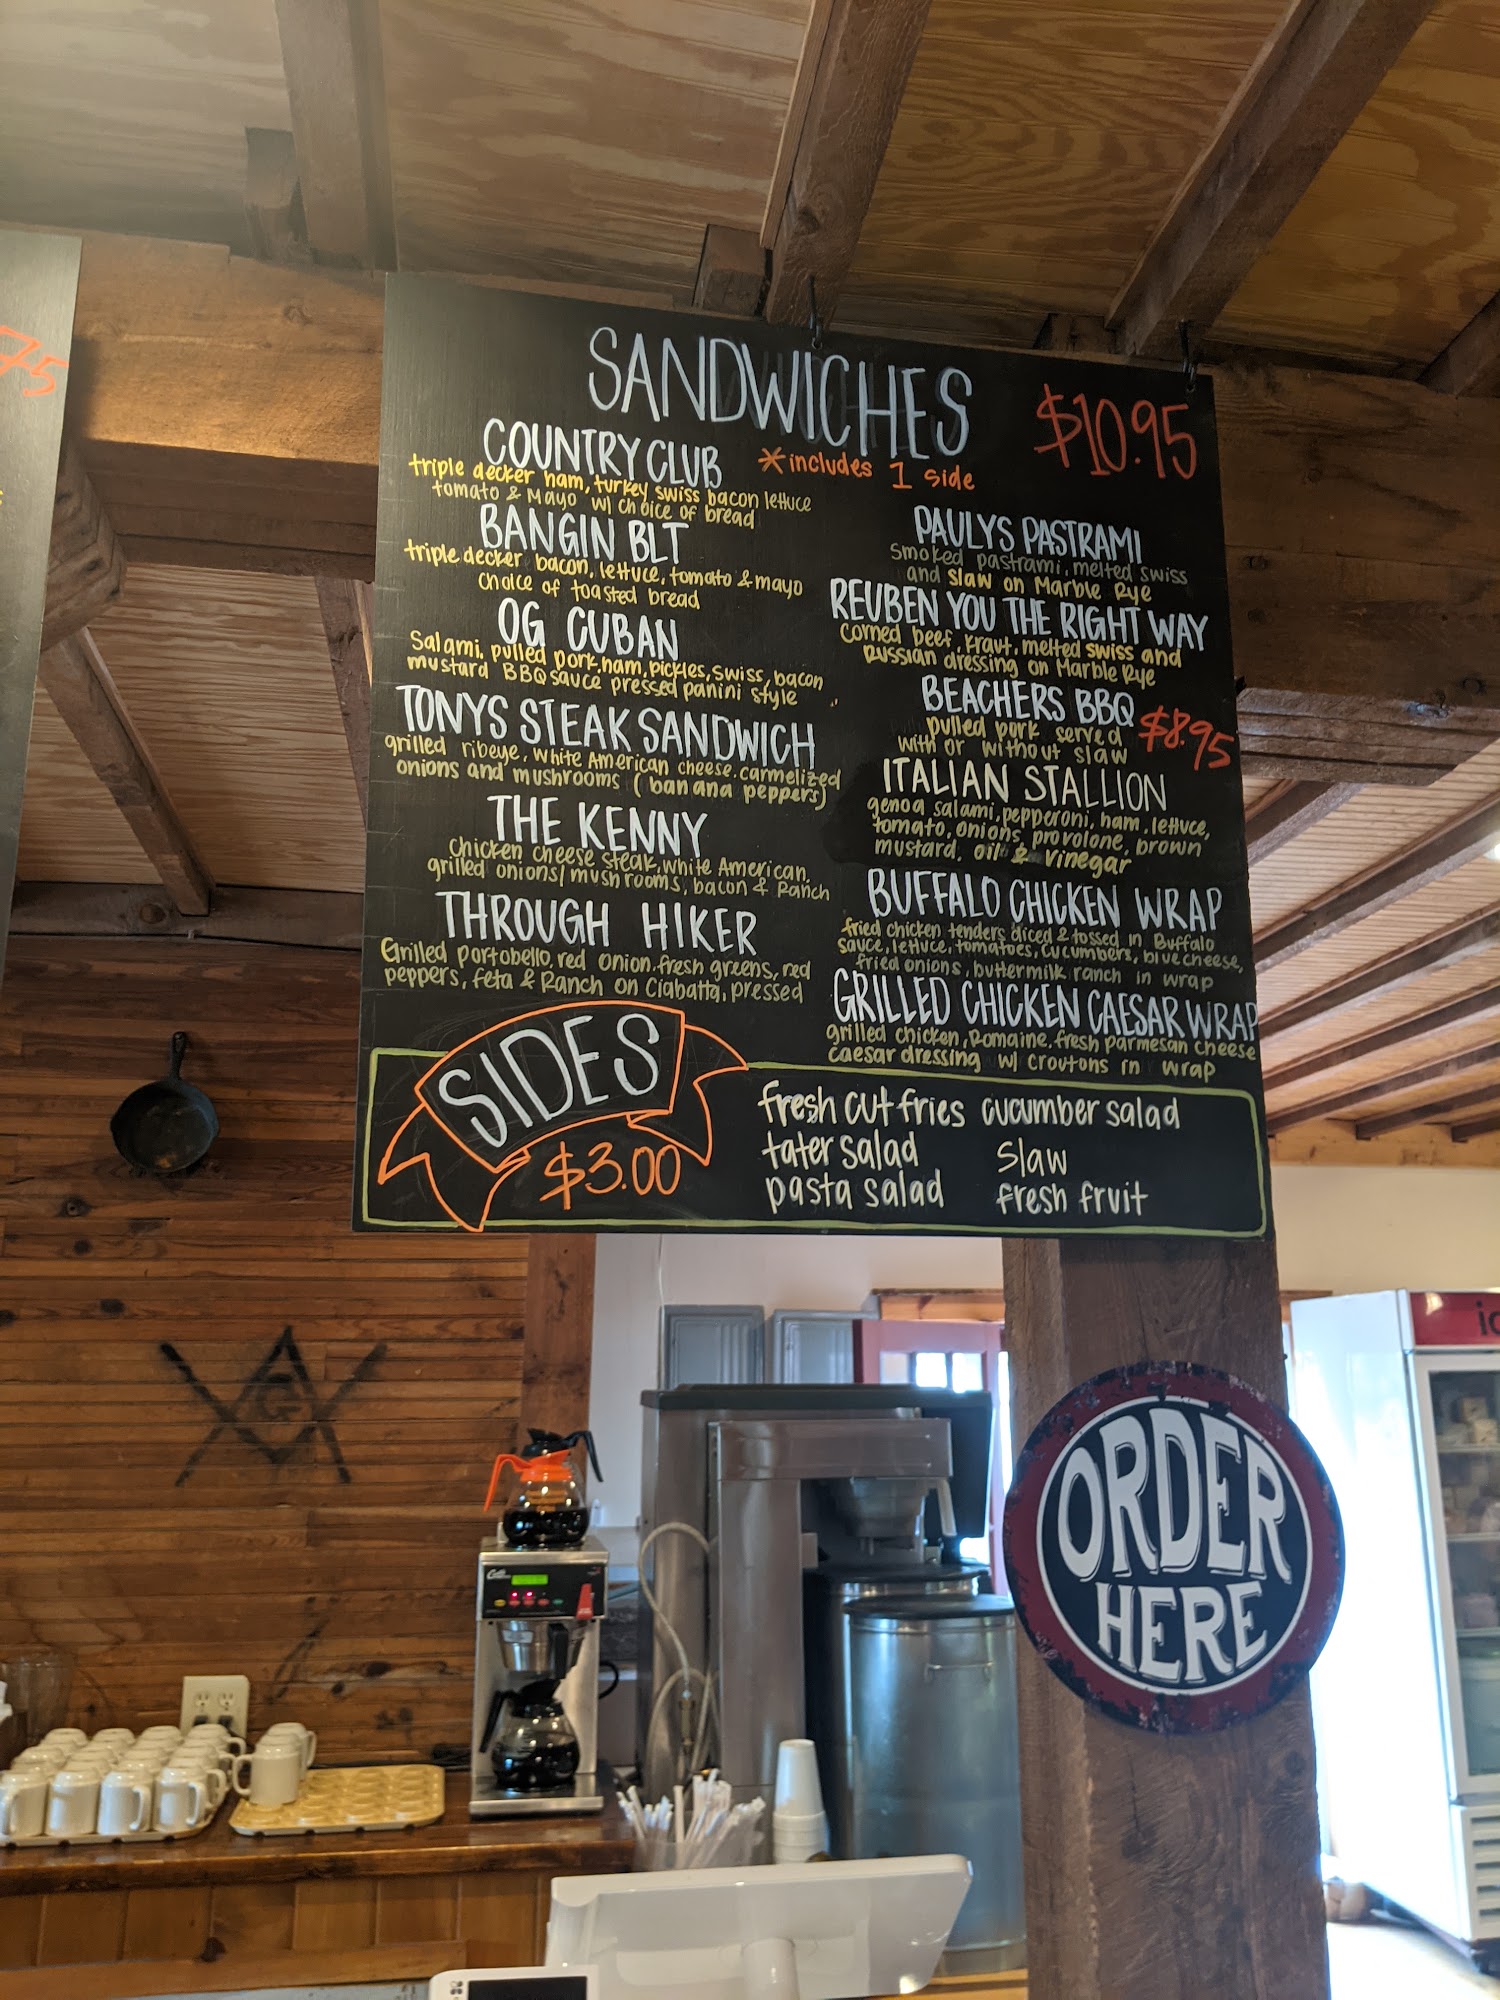 75
SANDWICHES
$10.95
*includes 1 side
COUNTRY CLUB
triple decker ham, turkey swiss bacon lettuce
tomato & Mayo w/ choice of bread
BANGIN BLT
triple decker bacon, lettuce, tomato & mayo
choice of toasted bread
OG CUBAN
Salami, pulled pork, ham, pickles, swiss, bacon
mustard BBQ sauce pressed panini style
TONYS STEAK SANDWICH
grilled ribeye, white American cheese, carmelized
onions and mushrooms (banana peppers)
THE KENNY
chicken cheese steak, white American,
grilled onions/mushrooms, bacon & Ranch
THROUGH HIKER
Grilled portobello, red onion, fresh greens, red
peppers, feta & Ranch on Ciabatta, pressed
PAULYS PASTRAMI
smoked pastrami, melted swiss
and slaw on Marble Rye
REUBEN YOU THE RIGHT WAY
Corned beef, kraut, melted swiss and
Russian dressing on Marble Rye
BEACHERS BBQ
$8.95
pulled pork served
with or without slaw
ITALIAN STALLION
genoa salami, pepperoni, ham, lettuce,
tomato, onions, provolone, brown
mustard, oil & vinegar
BUFFALO CHICKEN WRAP
fried chicken tenders diced & tossed in Buffalo
sauce, lettuce, tomatoes, cucumbers, blue cheese,
fried onions, buttermilk ranch in wrap
GRILLED CHICKEN CAESAR WRAP
grilled chicken, Romaine, fresh parmesan cheese
caesar dressing w/ croutons in wrap
SIDES
$3.00
fresh cut fries cucumber salad
tater salad slaw
pasta salad fresh fruit
ORDER
HERE
G